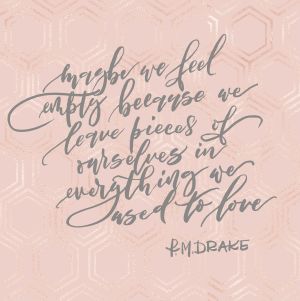 maybe we feel
empty because we
leave pieces of
ourselves in
everything we
used to love
R.M.DRAKE